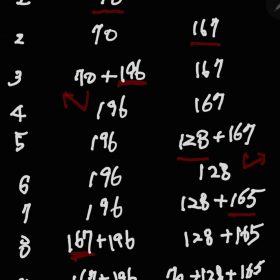 2 70 167
3 70+196 167
4 196 167
5 196 128+167
6 196 128
7 196 128+165
8 167+196 128+165
167+196 70+128+165